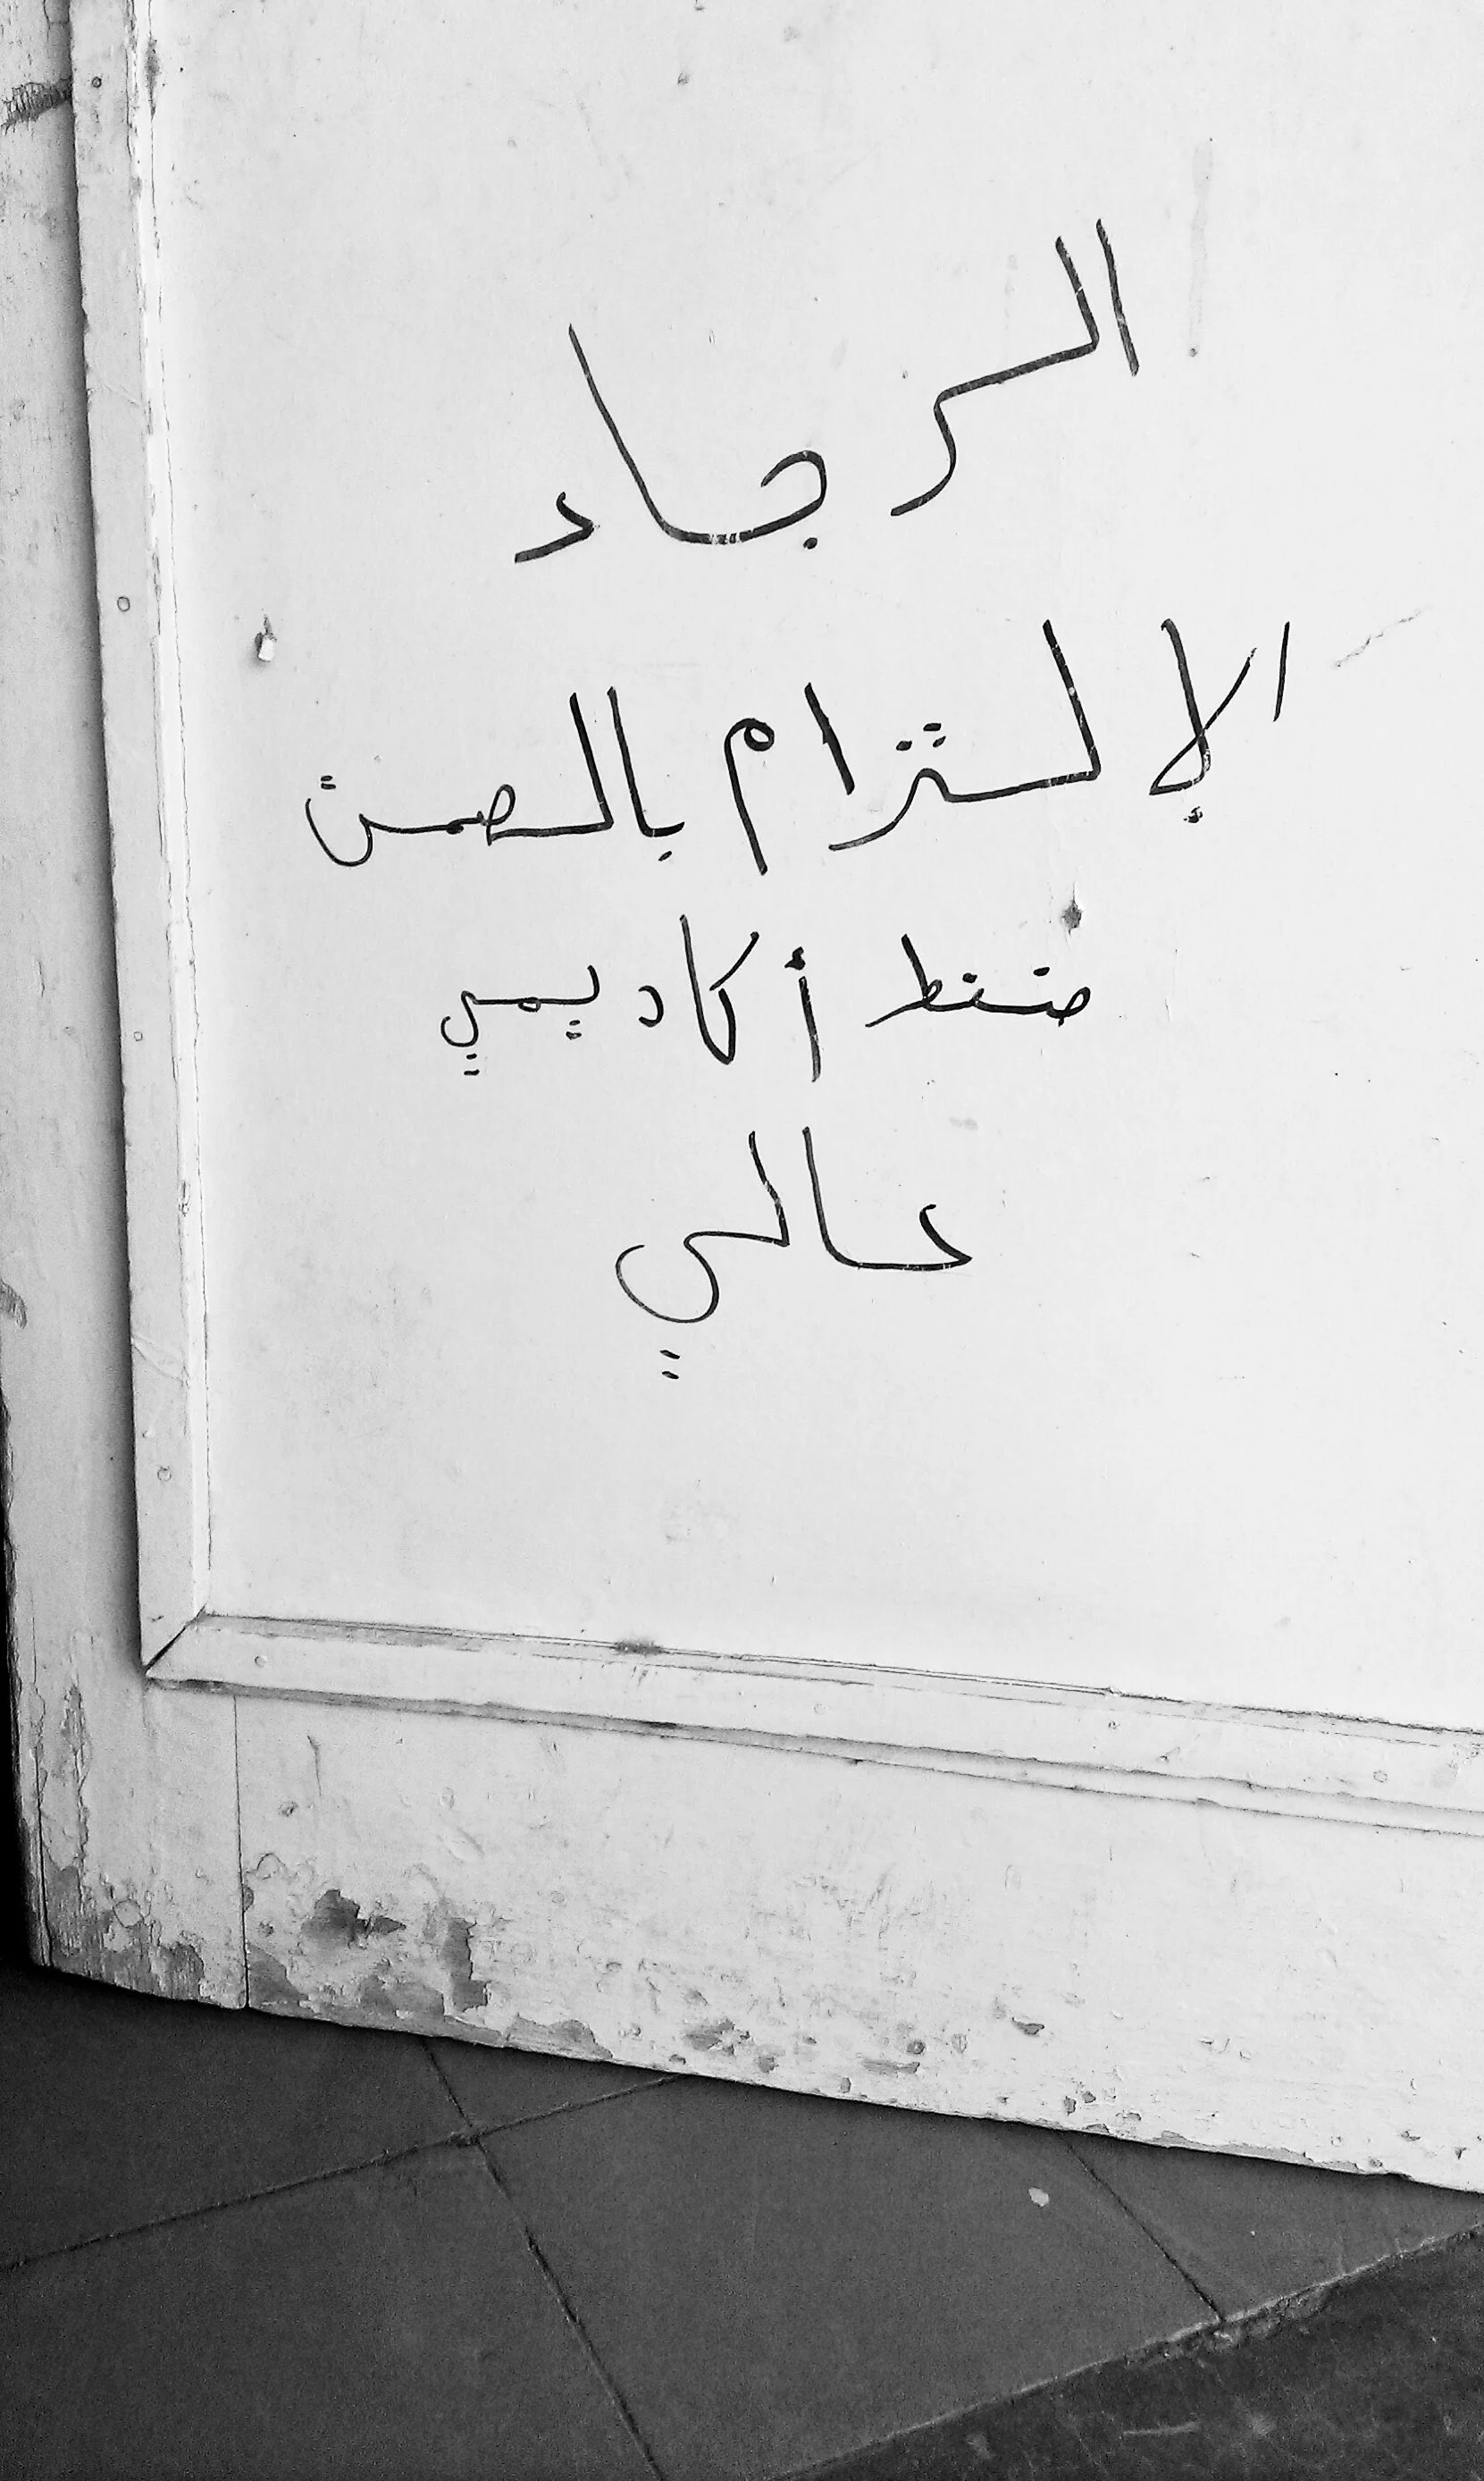 الرجاء
الإلتزام بالصمت
ضغط أكاديمي
عالي